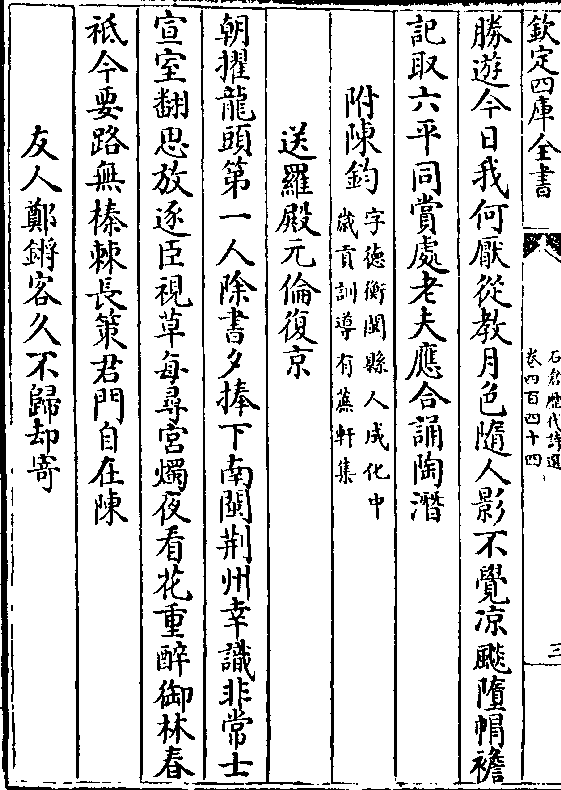 欽定四庫全書
石倉歷代詩選
卷四百四十四
三
勝遊今日我何厭從教月色隨人影不覺凉颷墮帽襜
記取六平同賞處老夫應合誦陶潛
附陳鈞
字德衡閩縣人成化中
歲貢訓導有蕉軒集
送羅殿元倫復京
朝擢龍頭第一人除書夕捧下南閩荆州幸識非常士
宣室翻思放逐臣視草每尋宮燭夜看花重醉御林春
祗今要路無榛棘長策君門自在陳
友人鄭鏘客久不歸却寄